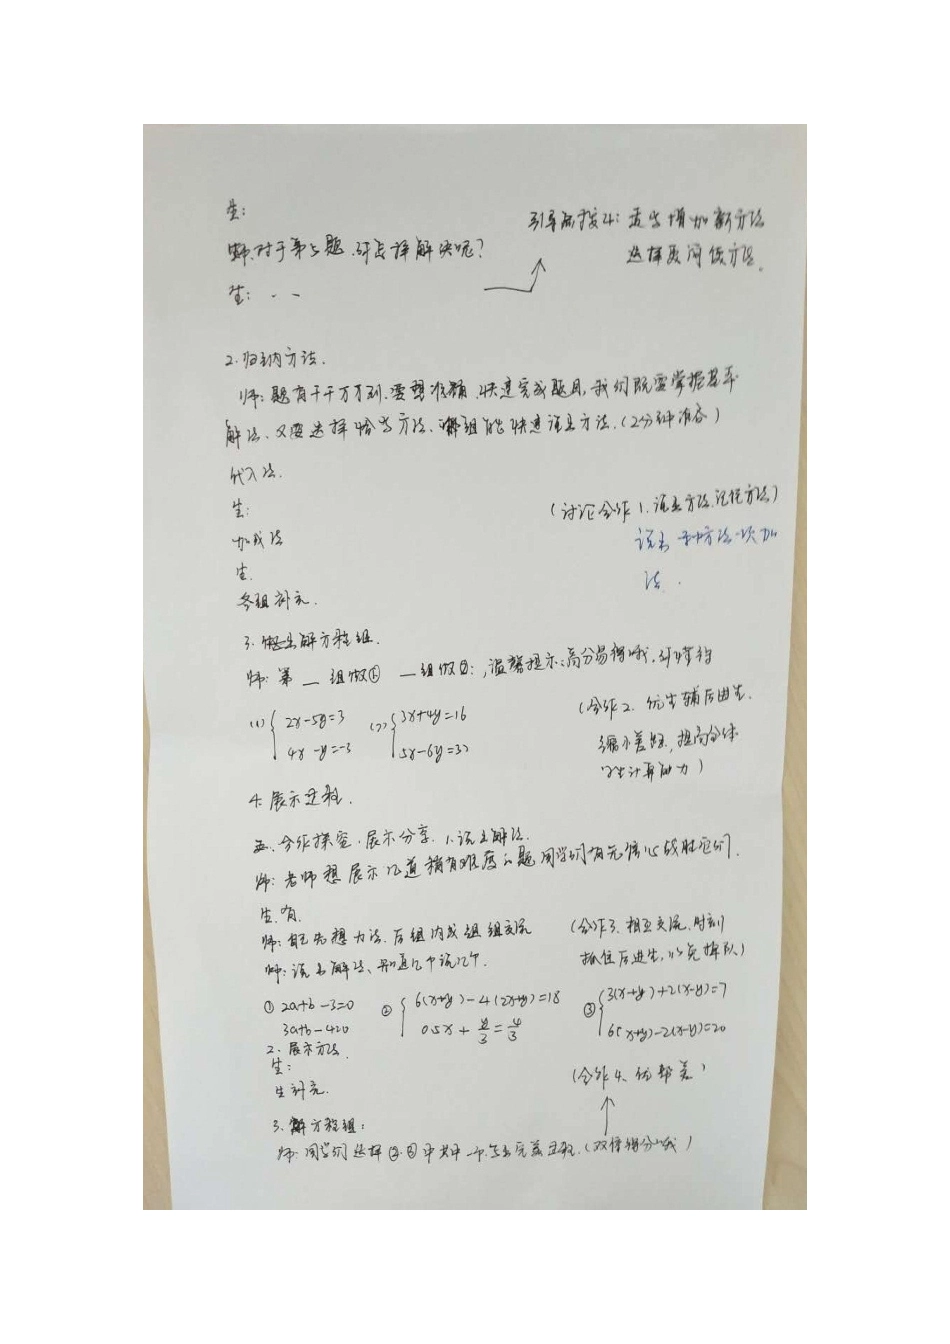 生:
师:对于第5题,研占详解决呢?
引导点拨4: 适当增加新方法
选择及简便方法。
生: . . 
2.归纳方法.
师: 题有千千万万到,要想准确、快速完成题目,我们既要掌握基本
解法、又要选择恰当方法、哪组能快速说出方法.(2分钟准备)
代入法.
生:
(讨论合作1.说出方法,记住方法)
加减法
说出一种方法一次加
法.
生.
各组补充.
3.解方程组.
师: 第__组做① __组做②:,温馨提示:高分易得哦,
(1) { 2x-5y=3
4x-y=-3
(2) { 3x+4y=16
5x-6y=33
(合作2. 优生辅后进生,
缩小差距,提高全体
学生计算能力)
4.展示过程.
五.合作探究.展示分享. 1.说出解法.
师: 老师想展示几道稍有难度的题同学们有无信心战胜它们.
生.有.
师: 自己先想办法.后组内或组组交流
(合作3.相互交流.时刻
抓住后进生,以免掉队)
师: 说出解法、
① 2a+b-3=0
3a+b-4=0
② { 6(x+y)-4(2x+y)=18
0.5x+y/3=4/3
③ { 3(x+y)+2(x-y)=7
6(x+y)-2(x-y)=20
2.展示方法.
生:
生补充.
(合作4、优帮差)
3.解方程组:
师: 同学们选择②③中其中一个写出完整过程.(双倍得分哦)